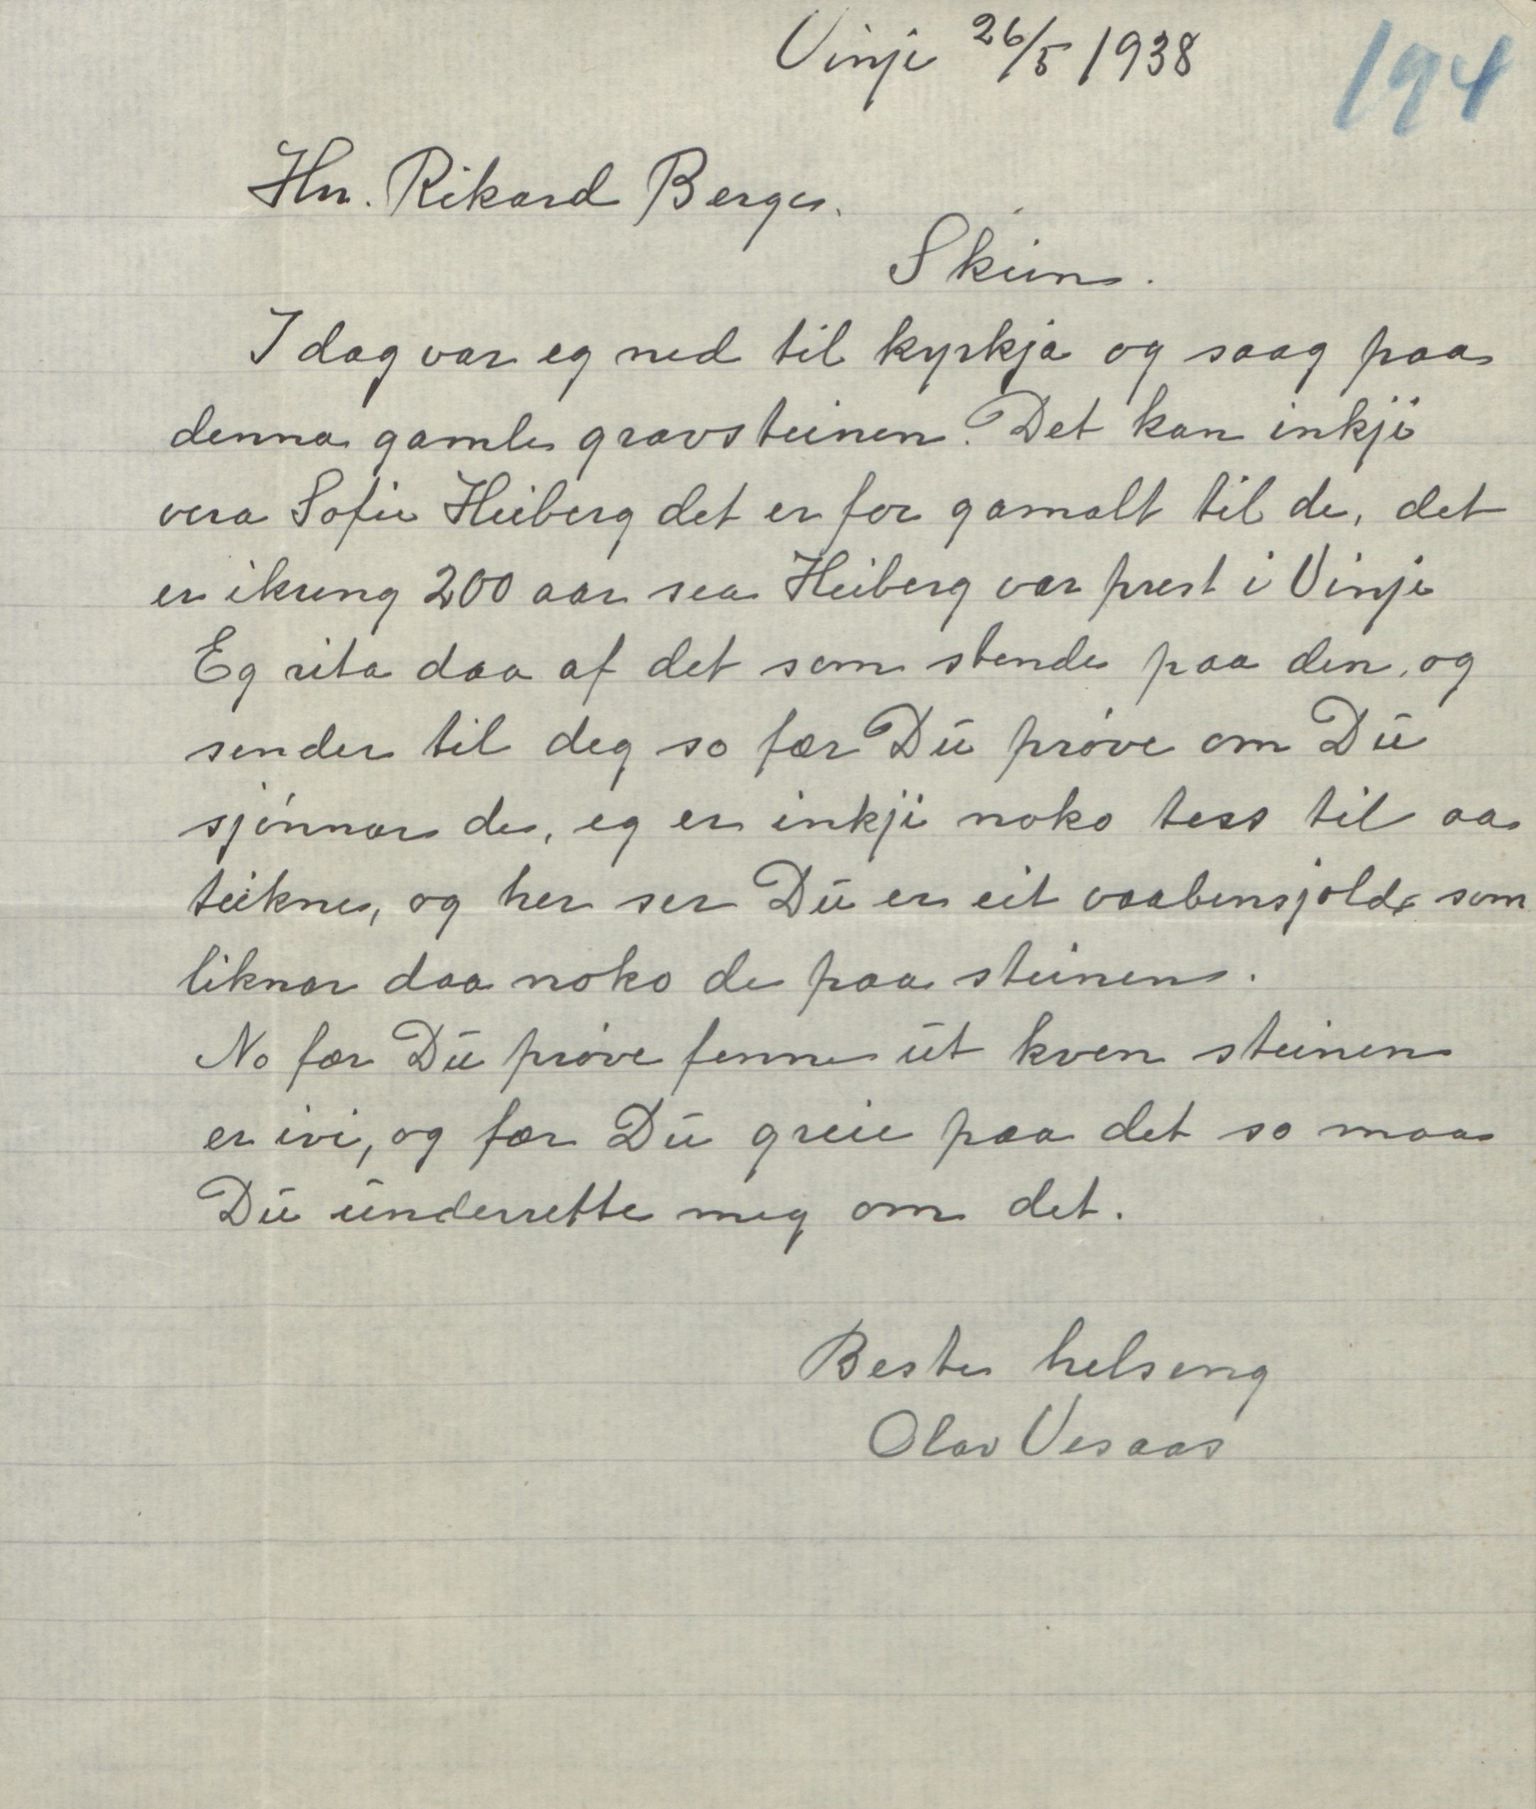 Vinje 26/5 1938
194
Hr. Rikard Berge.
Skien.
I dag var eg ned til kyrkja og saag paa
denna gamle gravsteinen. Det kan inkji
vera Sofie Heiberg det er for gamalt til de, det
er ikreng 200 aar sea Heiberg var prest i Vinje
Eg rita daa af det som stende paa den, og
sender til deg so fær Dū prøve om Dū
sjønnar de, eg er inkji noko tess til aa
teikne, og her ser Dū er eit vaabensjold som
liknar daa noko de paa steinen.
No fær Dū prøve fenne ūt kven steinen
er ivi, og fær Dū greie paa det so maa
Dū ūnderrette meg om det.
Beste helseng
Olav Vesaas